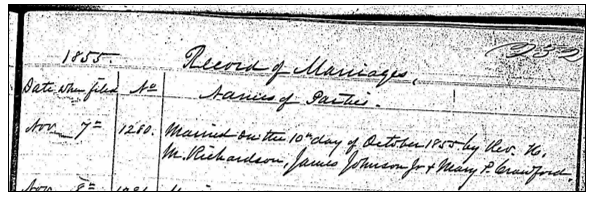 232
1855.
Record of Marriages.
Date when filed No
Names of Parties.
Nov. 7th 1280. Married on the 10th day of October 1855 by Rev. H.
M. Richardson, James Johnson Jr & Mary P. Crawford.
Nov. 8th